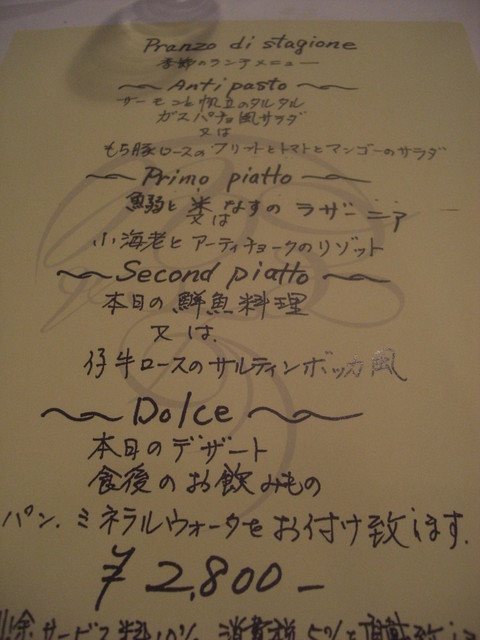 Pranzo di stagione
季節のランチメニュー
Antipasto
サーモンと帆立のタルタル
ガスパチョ風サラダ
又は
もち豚ロースのフリットとトマトとマンゴーのサラダ
Primo piatto
魚貝と米なすのラザーニア
又は
小海老とアーティチョークのリゾット
Second piatto
本日の鮮魚料理
又は
仔牛ロースのサルティンボッカ風
Dolce
本日のデザート
食後のお飲みもの
パン、ミネラルウォータをお付け致します。
¥2,800-
サービス料10% 消費税5%を